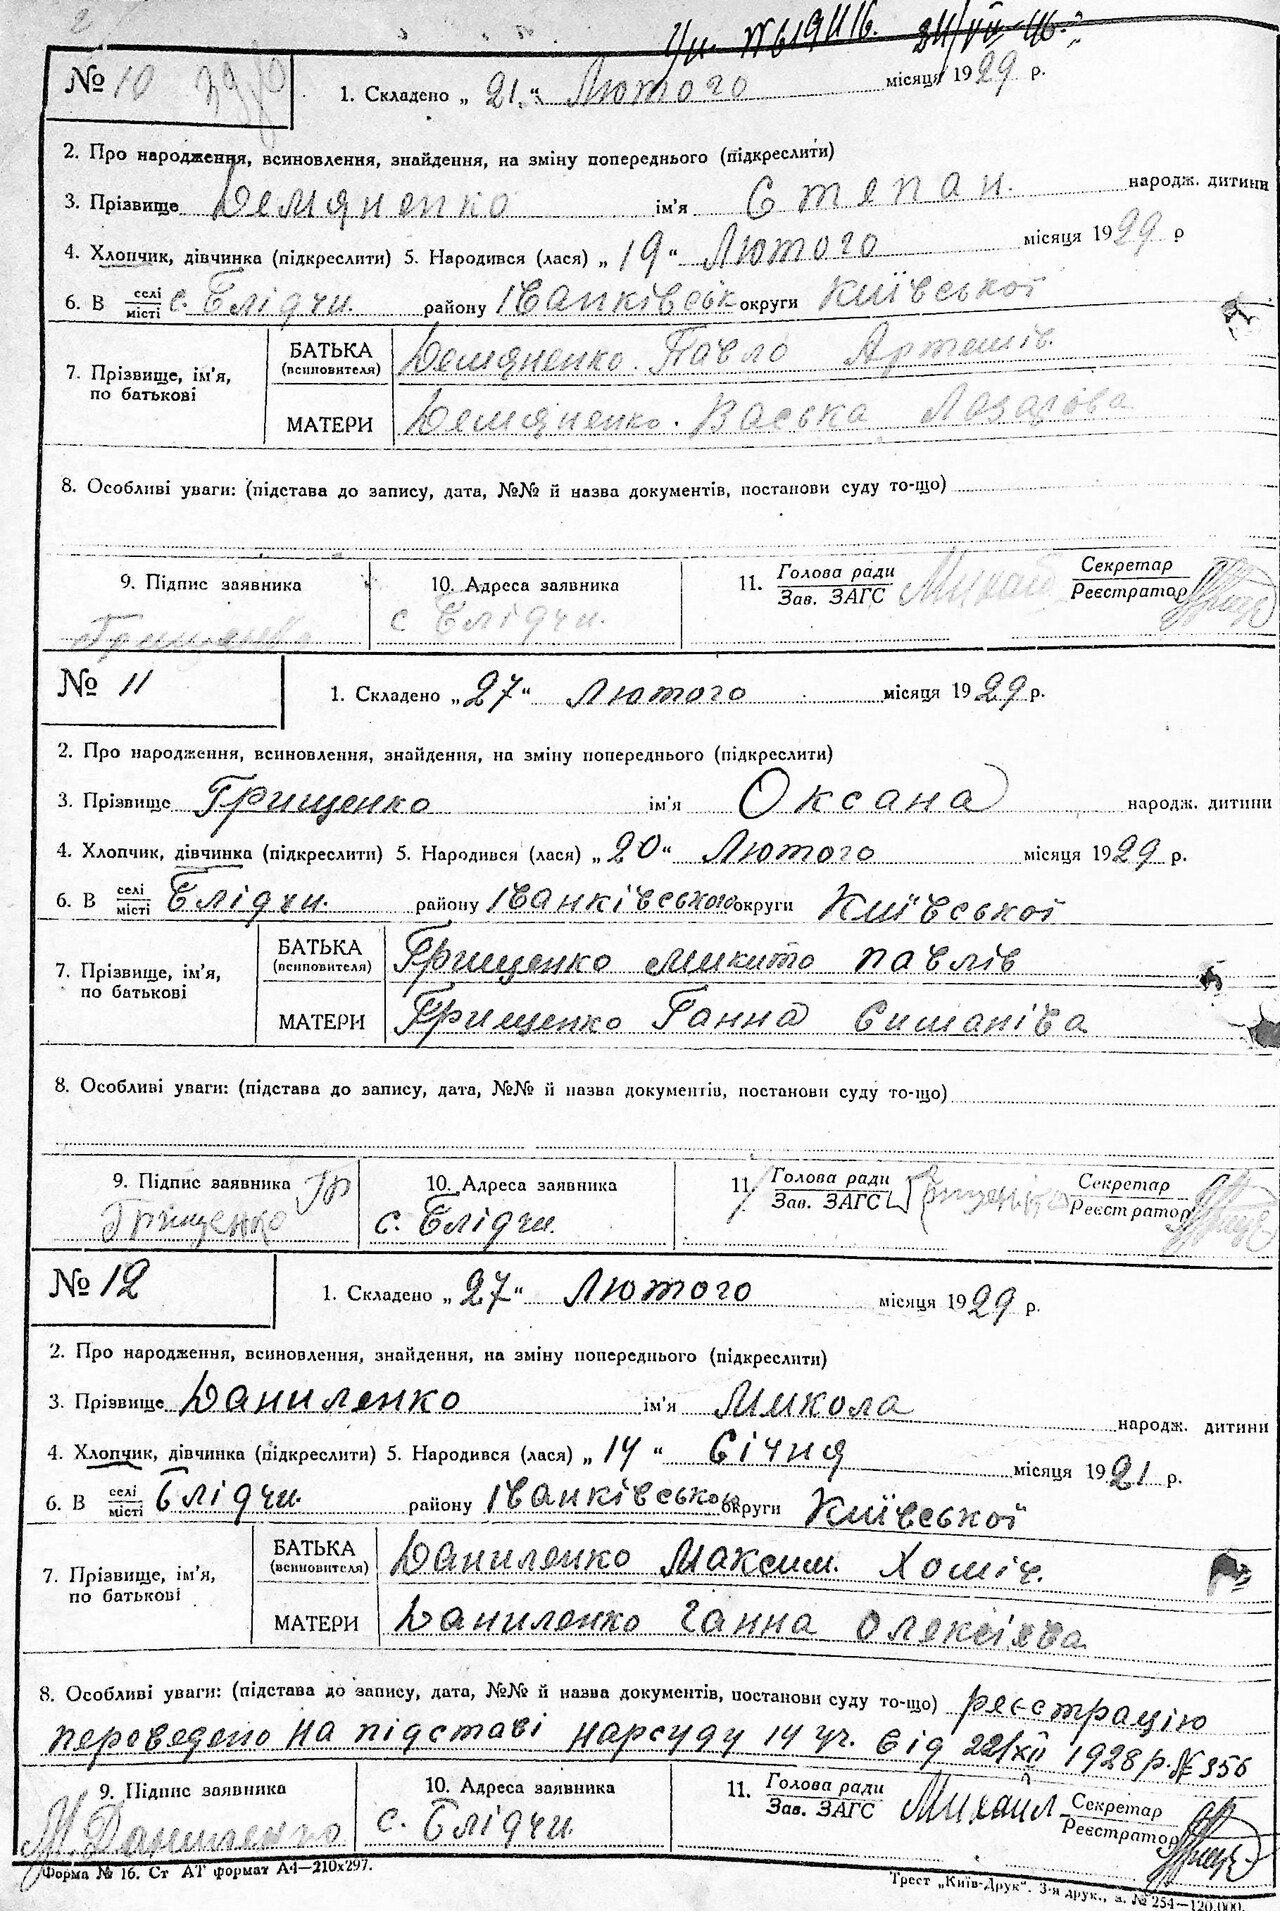 Уп. №619416. 24/VII-46.
№ 10
1. Складено „21“ Лютого місяця 1929 р.
2. Про народження, всиновлення, знайдення, на зміну попереднього (підкреслити)
3. Прізвище Демяненко ім'я Степан. народж. дитини
4. Хлопчик, дівчинка (підкреслити) 5. Народився (лася) „19“ Лютого місяця 1929 р
6. В селі/місті с. Блідчи. району Іванківськ округи Київської
7. Прізвище, ім'я, по батькові
БАТЬКА (всиновителя) Демяненко. Павло Артемів.
МАТЕРИ Демяненко. Васька Лазарова
8. Особливі уваги: (підстава до запису, дата, №№ й назва документів, постанови суду то-що)
9. Підпис заявника 10. Адреса заявника 11. Голова ради/Зав. ЗАГС Михаїл Секретар/Реєстратор
с Блідчи.
№ 11
1. Складено „27“ Лютого місяця 1929 р.
2. Про народження, всиновлення, знайдення, на зміну попереднього (підкреслити)
3. Прізвище Грищенко ім'я Оксана народж. дитини
4. Хлопчик, дівчинка (підкреслити) 5. Народився (лася) „20“ Лютого місяця 1929 р.
6. В селі/місті Блідчи. району Іванківського округи Київської
7. Прізвище, ім'я, по батькові
БАТЬКА (всиновителя) Грищенко Микито Павлів
МАТЕРИ Грищенко Ганна Симанівa
8. Особливі уваги: (підстава до запису, дата, №№ й назва документів, постанови суду то-що)
9. Підпис заявника Гр 10. Адреса заявника 11. Голова ради/Зав. ЗАГС Грищенко Секретар/Реєстратор
Грищенко с. Блідчи.
№ 12
1. Складено „27“ Лютого місяця 1929 р.
2. Про народження, всиновлення, знайдення, на зміну попереднього (підкреслити)
3. Прізвище Даниленко ім'я Микола народж. дитини
4. Хлопчик, дівчинка (підкреслити) 5. Народився (лася) „14“ Січня місяця 1921 р.
6. В селі/місті Блідчи. району Іванківсько округи Київської
7. Прізвище, ім'я, по батькові
БАТЬКА (всиновителя) Даниленко Максим. Хоміч.
МАТЕРИ Даниленко Ганна Олексіява
8. Особливі уваги: (підстава до запису, дата, №№ й назва документів, постанови суду то-що) реєстрацію
переведено на підставі нарсуду 14 уч. від 22/XII 1928 р. № 356
9. Підпис заявника 10. Адреса заявника 11. Голова ради/Зав. ЗАГС Михаїл Секретар/Реєстратор
М. Даниленко с. Блідчи
Форма № 16. Ст АТ формат А4—210x297.
Трест „Київ-Друк“. 3-я друк., з. № 254—120.000.